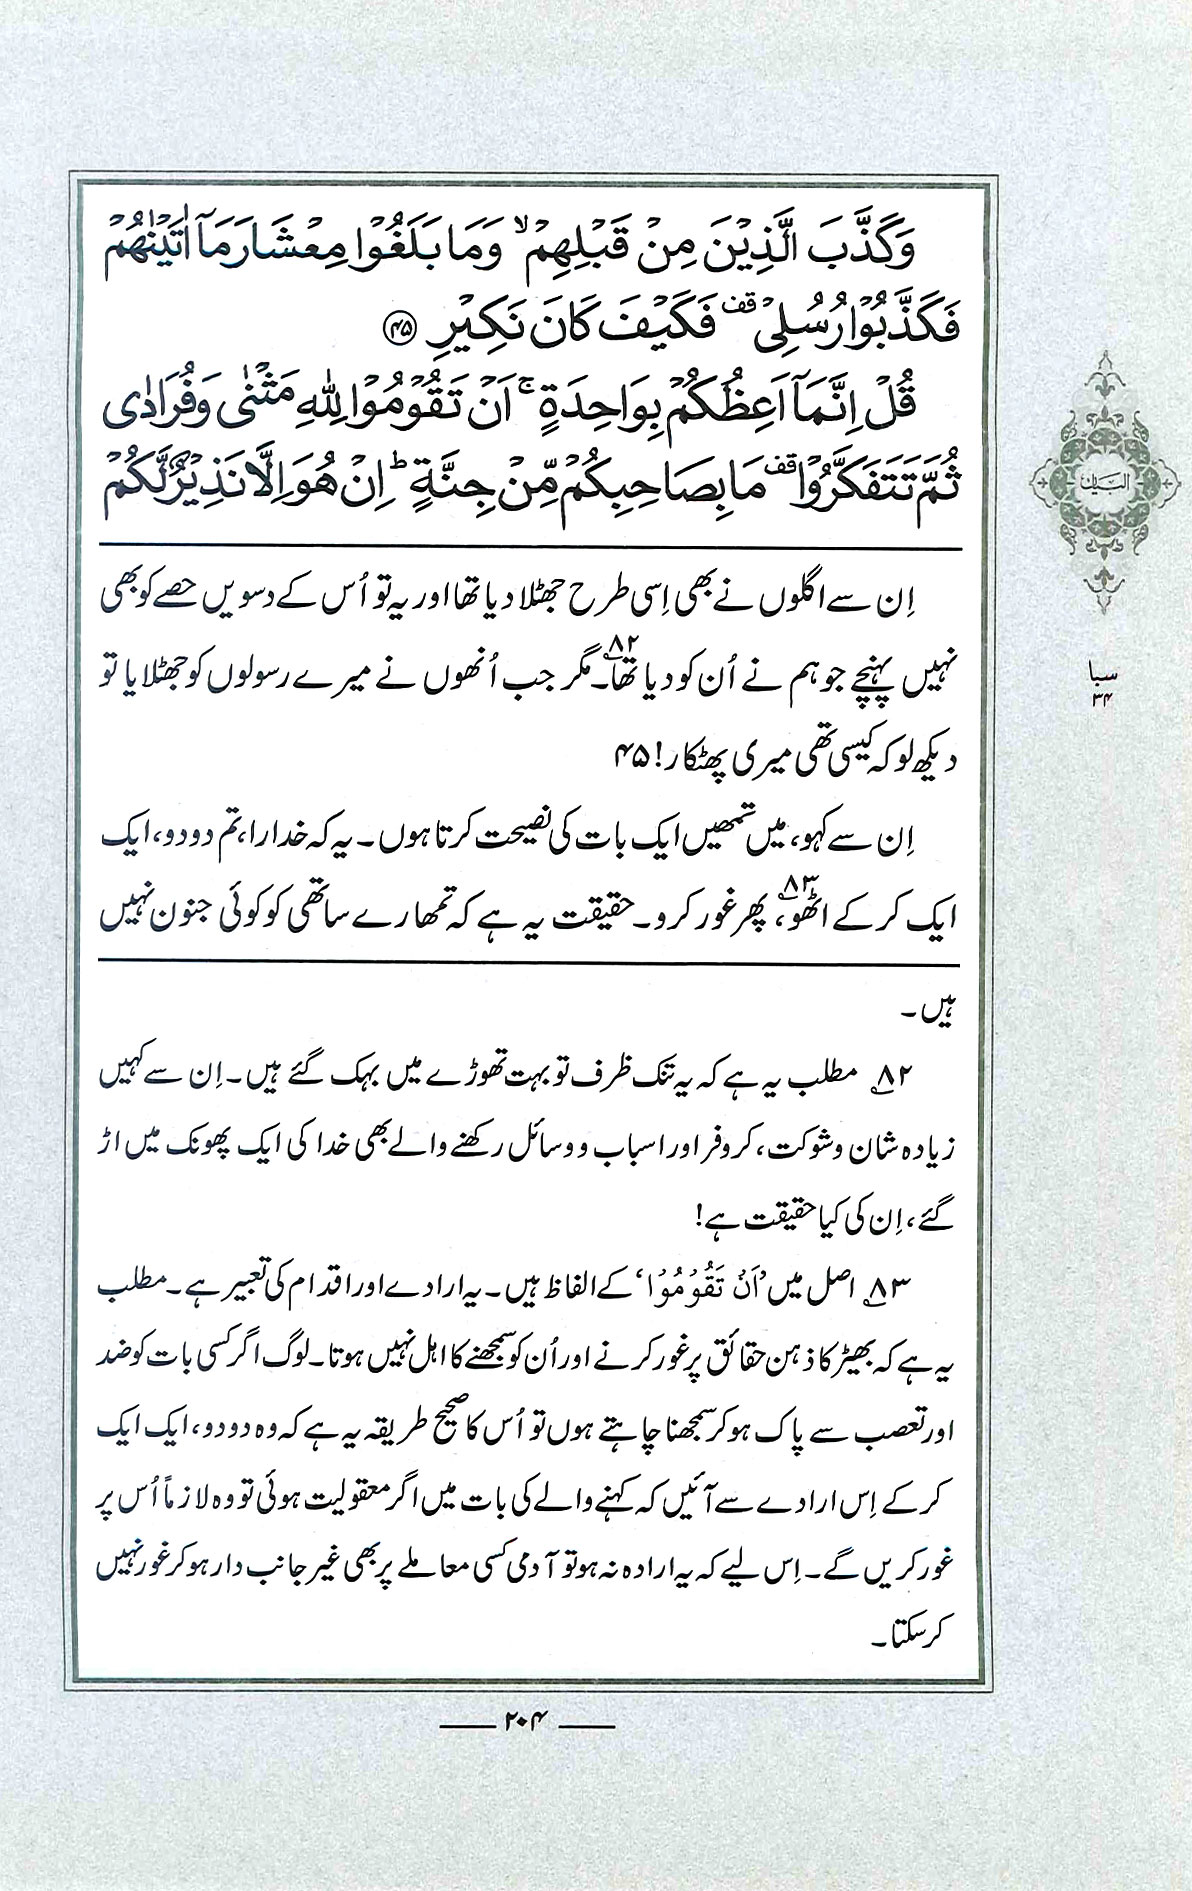 وَكَذَّبَ الَّذِيْنَ مِنْ قَبْلِهِمْ ۙ وَمَا بَلَغُوْا مِعْشَارَ مَآ اٰتَيْنٰهُمْ
فَكَذَّبُوْا رُسُلِيْ ۣ فَكَيْفَ كَانَ نَكِيْرِ ﴿۴۵﴾
قُلْ اِنَّمَآ اَعِظُكُمْ بِوَاحِدَةٍ ۚ اَنْ تَقُوْمُوْا لِلّٰهِ مَثْنٰى وَفُرَادٰى
ثُمَّ تَتَفَكَّرُوْا ۣ مَا بِصَاحِبِكُمْ مِّنْ جِنَّةٍ ؕ اِنْ هُوَ اِلَّا نَذِيْرٌ لَّكُمْ
اِن سے اگلوں نے بھی اِسی طرح جھٹلا دیا تھا اور یہ تو اُس کے دسویں حصے کو بھی
نہیں پہنچے جو ہم نے اُن کو دیا تھا۸۲۔ مگر جب اُنھوں نے میرے رسولوں کو جھٹلایا تو
دیکھ لو کہ کیسی تھی میری پھٹکار! ۴۵
اِن سے کہو، میں تمھیں ایک بات کی نصیحت کرتا ہوں۔ یہ کہ خدارا، تم دو دو، ایک
ایک کر کے اٹھو۸۳، پھر غور کرو۔ حقیقت یہ ہے کہ تمھارے ساتھی کو کوئی جنون نہیں
ہیں۔
۸۲ مطلب یہ ہے کہ یہ تنک ظرف تو بہت تھوڑے میں بہک گئے ہیں۔ اِن سے کہیں
زیادہ شان و شوکت، کروفر اور اسباب و وسائل رکھنے والے بھی خدا کی ایک پھونک میں اڑ
گئے، اِن کی کیا حقیقت ہے!
۸۳ اصل میں ’اَنْ تَقُوْمُوْا‘ کے الفاظ ہیں۔ یہ ارادے اور اقدام کی تعبیر ہے۔ مطلب
یہ ہے کہ بھیڑ کا ذہن حقائق پر غور کرنے اور اُن کو سمجھنے کا اہل نہیں ہوتا۔ لوگ اگر کسی بات کو ضد
اور تعصب سے پاک ہو کر سمجھنا چاہتے ہوں تو اُس کا صحیح طریقہ یہ ہے کہ وہ دو دو، ایک ایک
کر کے اِس ارادے سے آئیں کہ کہنے والے کی بات میں اگر معقولیت ہوئی تو وہ لازماً اُس پر
غور کریں گے۔ اِس لیے کہ یہ ارادہ نہ ہو تو آدمی کسی معاملے پر بھی غیر جانب دار ہو کر غور نہیں
کر سکتا۔
۲۰۴
البیان
سبا
۳۴